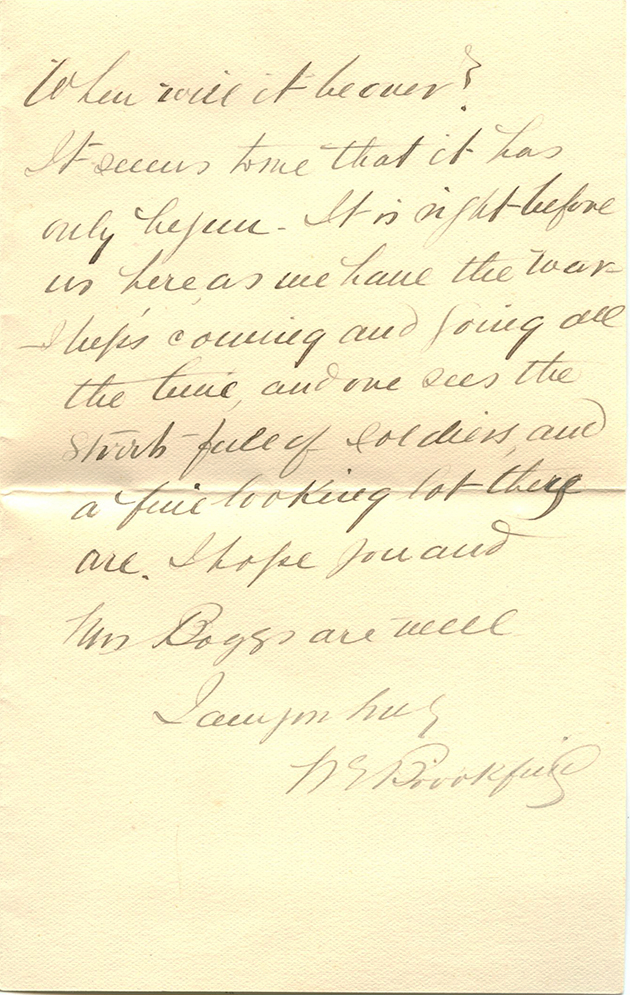 When will it be over?
It seems to me that it has
only begun - It is right before
us here, as we have the war
ships coming and going all
the time, and one sees the
streets full of soldiers, and
a fine looking lot they
are. I hope you and
Mrs Boggs are well
I am yrs truly
Brookfield